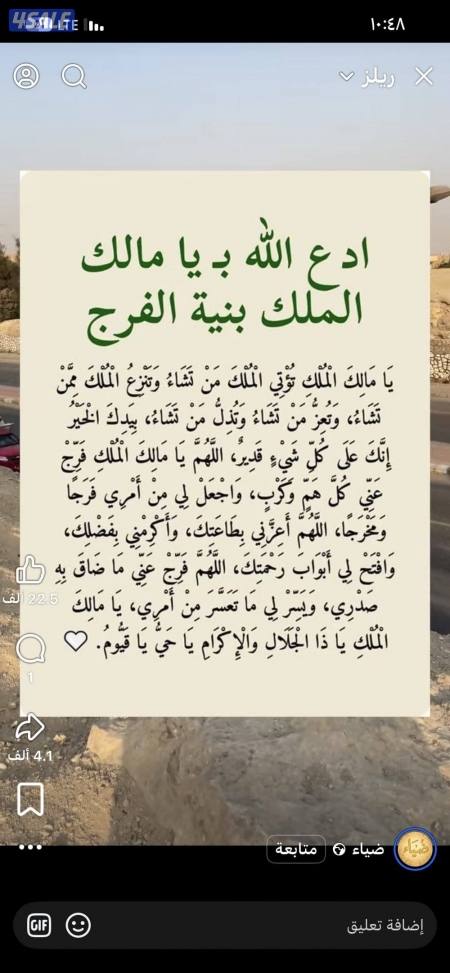 4SALE
LTE
١٠:٤٨
ريلز
ادع الله بـ يا مالك
الملك بنية الفرج
يَا مَالِكَ الْمُلْكِ تُؤْتِي الْمُلْكَ مَنْ تَشَاءُ وَتَنْزِعُ الْمُلْكَ مِمَّنْ
تَشَاءُ، وَتُعِزُّ مَنْ تَشَاءُ وَتُذِلُّ مَنْ تَشَاءُ، بِيَدِكَ الْخَيْرُ
إِنَّكَ عَلَى كُلِّ شَيْءٍ قَدِيرٌ، اللَّهُمَّ يَا مَالِكَ الْمُلْكِ فَرِّجْ
عَنِّي كُلَّ هَمٍّ وَكَرْبٍ، وَاجْعَلْ لِي مِنْ أَمْرِي فَرَجًا
وَمَخْرَجًا، اللَّهُمَّ أَعِزَّنِي بِطَاعَتِكَ، وَأَكْرِمْنِي بِفَضْلِكَ،
وَافْتَحْ لِي أَبْوَابَ رَحْمَتِكَ، اللَّهُمَّ فَرِّجْ عَنِّي مَا ضَاقَ بِهِ
صَدْرِي، وَيَسِّرْ لِي مَا تَعَسَّرَ مِنْ أَمْرِي، يَا مَالِكَ
الْمُلْكِ يَا ذَا الْجَلَالِ وَالْإِكْرَامِ يَا حَيُّ يَا قَيُّومُ. 🤍
22.5 ألف
1
4.1 ألف
ضياء
متابعة
ضياء
إضافة تعليق
GIF